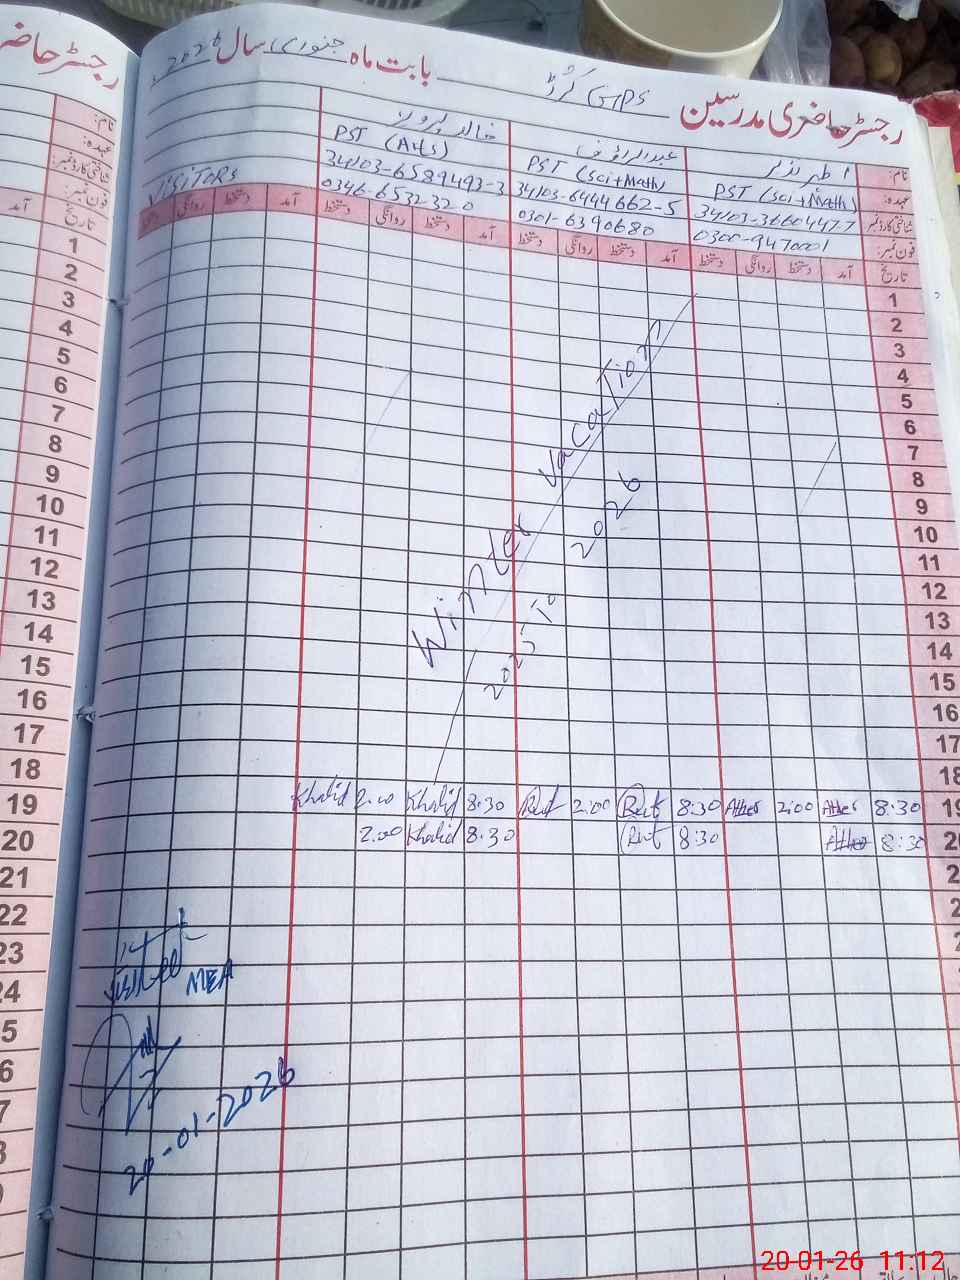 رجسٹر حاضری مدرسین GPS کرڑ بابت ماہ جنوری سال 2026
رجسٹر حاضر
نام: اطہر نذیر عبدالرؤف خالد پرویز
عہدہ: PST (Sci+Math) PST (Sci+Math) PST (AHS)
شناختی کارڈ نمبر: 34103-3660447-7 34103-6444662-5 34103-6589493-3 VISITORS
فون نمبر: 0300-9470001 0301-6390680 0346-6532320
تاریخ آمد دستخط روانگی دستخط آمد دستخط روانگی دستخط آمد دستخط روانگی دستخط آمد دستخط روانگی دستخط
نام:
عہدہ:
شناختی کارڈ نمبر:
فون نمبر:
تاریخ آمد
1 1
2 2
3 3
4 4
5 5
6 6
7 7
8 8
9 9
10 10
11 11
12 12
13 13
14 14
15 15
16 16
17 17
18 18
Winter Vacation
2025 To 2026
19 Khalid 2.00 Khalid 8.30 Rauf 2:00 Rauf 8:30 Ather 2:00 Ather 8:30 19
20 2.00 Khalid 8.30 Rauf 8:30 Ather 8:30 20
21 2
22 2
23 2
24
5
6
7
8
9
Visited
MEA
20-01-2026
20-01-26 11:12